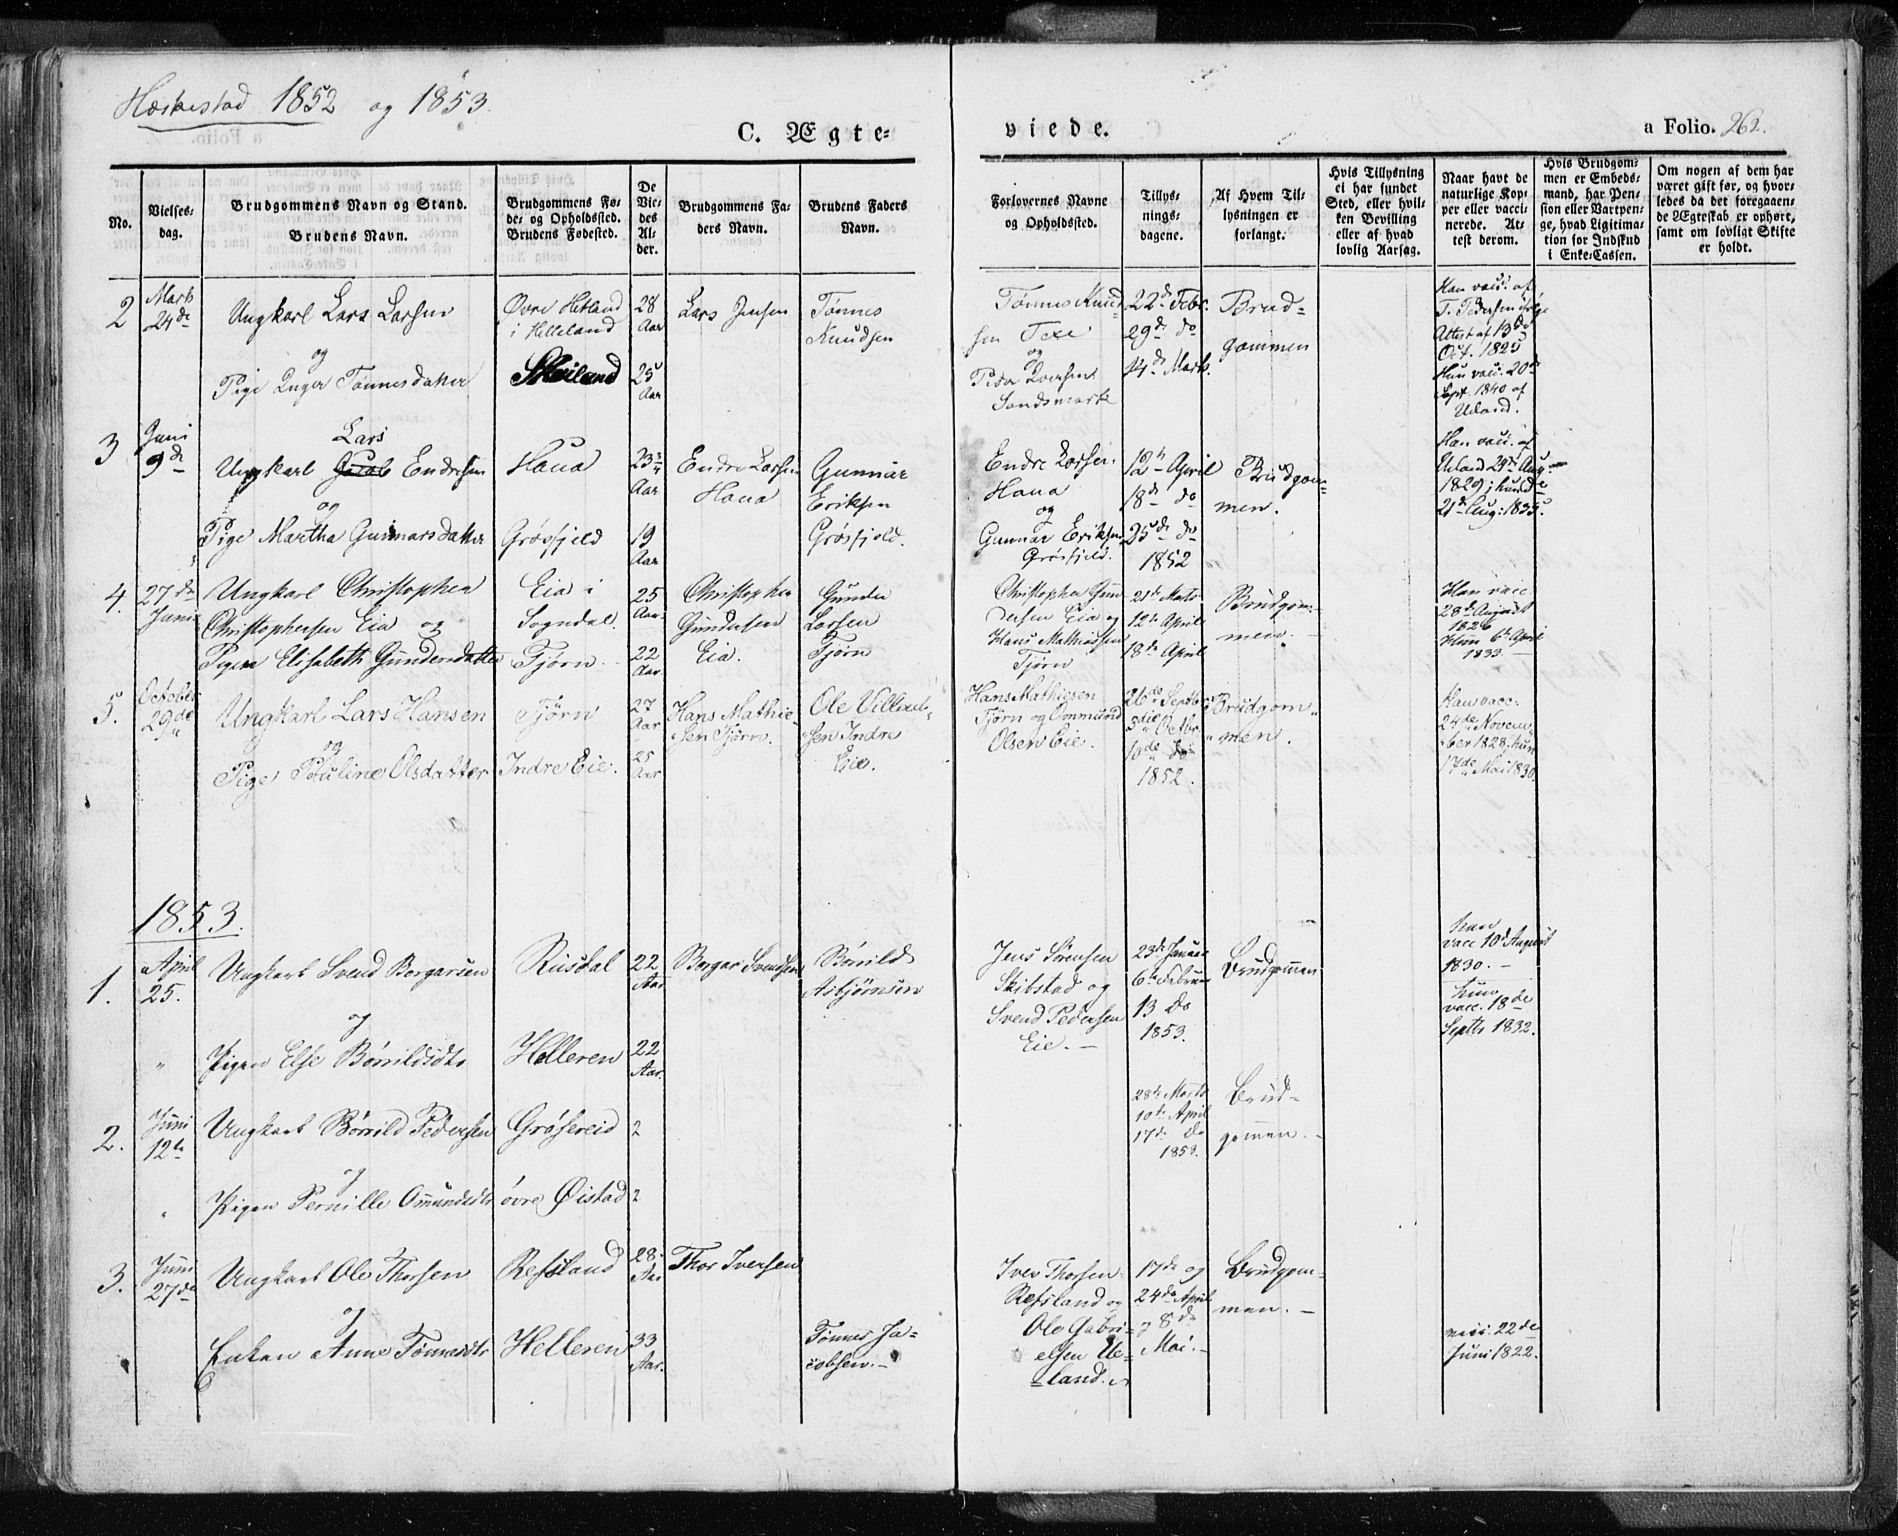 Heskestad 1852 og 1853.
C. Ægteviede.
a Folio. 262.
No.
Vielsesdag.
Brudgommens Navn og Stand.
Brudens Navn.
Brudgommens Føde- og Opholdssted.
Brudens Fødested.
De Viedes Alder.
Brudgommens Faders Navn.
Brudens Faders Navn.
Forlovernes Navne og Opholdssted.
Tillysningsdagene.
Af Hvem Tillysningen er forlangt.
Hvis Tillysning ei har fundet Sted, eller hvilken Bevilling eller af hvad lovlig Aarsag.
Naar havt de naturlige Kopper eller vaccinerede. Attest derom.
Hvis Brudgommen er Embedsmand, har Pension eller Vartpenge, hvad Legitimation for Indskud i Enke-Cassen.
Om nogen af dem har været gift før, og hvorledes da det foregaaende Ægteskab er ophørt, samt om lovligt Skifte er holdt.
2
Marts 24de
Ungkarl Lars Larsen
og
Pige Inger Tønnesdatter
Øvre Hetland
i Helleland
Skeiland
28 Aar
25 Aar
Lars Jensen
Tønnes
Knudsen
Tønnes Knud-
sen
og
Peder Iversen
Sandsmark
22de Febr.
29de do
14de Marts.
Brud-
gommen
Han vacc. af
T. Pedersen
Attest af 13de
Oct. 1825
Hun vacc. 20de
Sept. 1840 af
Ueland.
3
Juni
9de
Lars
Ungkarl Endresen
og
Pige Martha Gunnarsdatter
Haua
Grøsfjeld
23 3/4
Aar
19
Aar
Endre Larsen
Haua
Gunnar
Eriksen
Grøsfjeld.
Endre Larsen
Haua
og
Gunnar Eriksen
Grøsfjeld.
12te April
18de do
25de do
1852
Brudgom-
men.
Han vacc. af
Ueland 24de Aug
1829; hun de
21de Aug: 1835.
4.
27de
Juni
Ungkarl Christopher
Christophersen Eia og
Pigen Elisabeth Gundersdatter
Eia i
Sogndal.
Tjørn.
25
Aar.
22
Aar
Christopher
Gundersen
Eia.
Gunder
Larsen
Tjørn
Christopher Gun-
dersen Eia og
Hans Mathiassen
Tjørn
21de Marts
12te April
18de April
Brudgom-
men.
Han vacc
28de August
1826
Hun 6te April
1833.
5.
October
29de
Ungkarl Lars Hansen
og
Pige Pauline Olsdatter
Tjørn
Indre Eie.
27
Aar
25
Aar
Hans Mathie-
sen Tjørn.
Ole Villad-
sen Indre
Eie.
Hans Mathiesen
Tjørn og Ommund
Olsen Eie.
26de Septbr
3die Octbr
10de do
1852.
Brudgom-
men.
Han vacc.
24de Novem-
ber 1828, hun
17de Mai 1830.
1853.
1.
April
25.
Ungkarl Svend Borgarsen
og
Pigen Else Børrildsdtr
Rusdal
Helleren
22
Aar
22
Aar.
Borgar Svendsen
Børrild
Asbjørnsen
Jens Sørensen
Skibstad og
Svend Pedersen
Eie.
23de Januar
6te Februar
13 do
1853.
Brudgommen
han
vacc 10de August
1830.
hun
vacc. 18de
Septbr 1832.
2.
Juni
12te
Ungkarl Børrild Pedersen
og
Pigen Pernille Ommundsdtr
Grøsereid
øvre Øistad
2
2
28de Marts
10de April
17de do
1853.
Brud-
gommen.
3.
Juni
27de
Ungkarl Ole Thorsen
og
Enken Anne Tønnesdtr
Refsland
Helleren
28
Aar
33
Aar.
Thor Iversen
Tønnes Ja-
cobsen.
Iver Thorsen
Refsland og
Ole Gabri-
elsen Ue-
land.
17de og
24de April
8de
Mai.
Brudgom-
men.
vacc. 22de
Juni 1822.